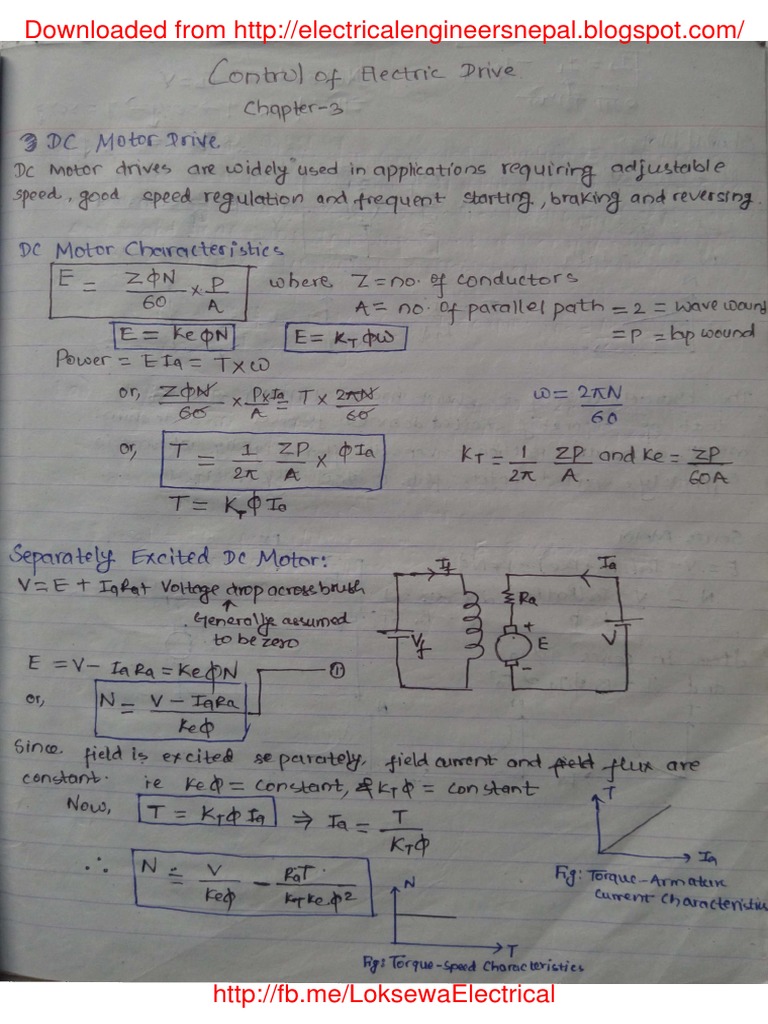 Downloaded from http://electricalengineersnepal.blogspot.com/
Control of Electric Drive
Chapter-3
3 DC Motor Drive.
DC Motor drives are widely used in applications requiring adjustable
speed, good speed regulation and frequent starting, braking and reversing.
DC Motor Characteristics
E = ZΦN/60 × P/A where Z = no. of conductors
A = no. of parallel path = 2 = wave wound
E = KeΦN E = KTΦω = P = lap wound
Power = EIa = T×ω
or, ZΦN/60 × P×Ia/A = T × 2πN/60 ω = 2πN/60
or, T = 1/2π ZP/A × ΦIa KT = 1/2π ZP/A. and Ke = ZP/60A
T = KTΦIa
Separately Excited Dc Motor:
V = E + IaRa + Voltage drop across brush
Generally assumed
to be zero
If Ia
Ra
Vf + E - V
E = V - IaRa = KeΦN ①
or, N = V - IaRa/KeΦ
Since field is excited separately, field current and field flux are
constant. ie KeΦ = constant, & KTΦ = constant
Now, T = KTΦIa ⇒ Ia = T/KTΦ
T
Ia
Fig: Torque-Armature
current Characteristics
∴ N = V/KeΦ - RaT/KTKe.Φ²
N
T
Fig: Torque-speed Characteristics
http://fb.me/LoksewaElectrical